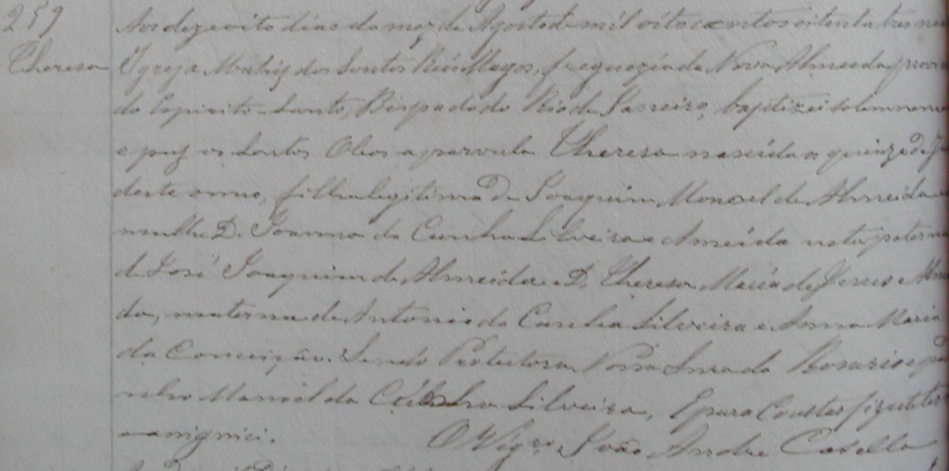 259
Theresa
Aos dezoito dias do mez de Agosto de mil oito centos oitenta tres nesta
Igreja Matriz dos Santos Reis Magos, freguezia de Nova Almeida, provin
do Espirito-Santo, Bispado do Rio de Janeiro, baptizei solemnemen
e puz os Santos Oleos a parvula Theresa nascida a quinze de
deste anno, filha legitima de Joaquim Manoel de Almeida
mulher D. Joanna da Cunha Silveira e Ameida neta paterna
de José Joaquim de Almeida e D. Theresa Maria de Jesus e Alm
da, materna de Antonio da Cunha Silveira e Anna Maria
da Conceição. Sendo Protectora Nossa Snra do Rosario e pa
nho Manoel da Cunha Silveira, E para Constar fiz este
assignei.
O Vigro João Andre Casella